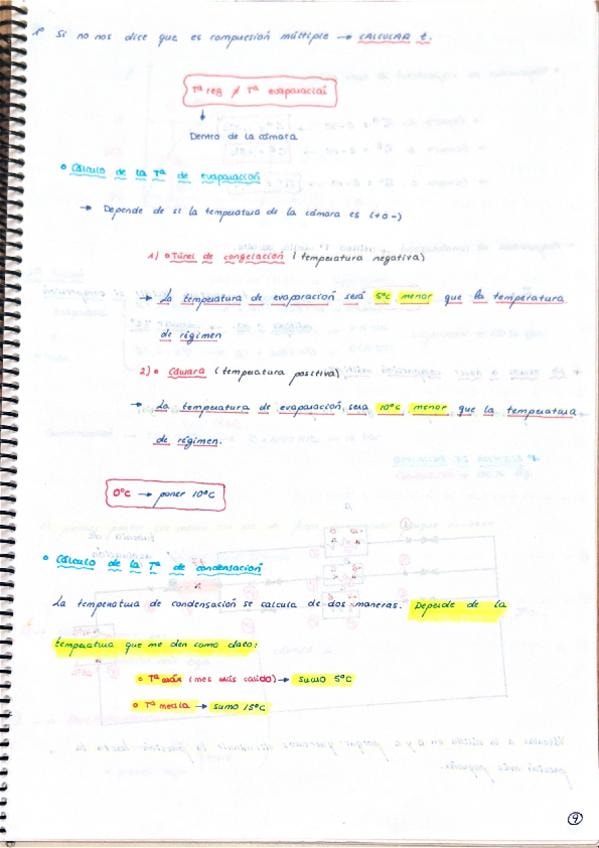 Si no nos dice que es compresión múltiple → CALCULAR t.
Tª reg ≠ Tª evaporación
Dentro de la cámara
Cálculo de la Tª de evaporación
→ Depende de si la temperatura de la cámara es (+ o -)
1) Túnel de congelación (temperatura negativa)
→ La temperatura de evaporación será 5ºC menor que la temperatura
de régimen
2) Cámara (temperatura positiva)
→ La temperatura de evaporación será 10ºC menor que la temperatura
de régimen.
0ºC → poner 10ºC
Cálculo de la Tª de condensación
La temperatura de condensación se calcula de dos maneras. Depende de la
temperatura que me den como dato:
Tª máx (mes más calido) → sumo 5ºC
Tª media → sumo 15ºC
9